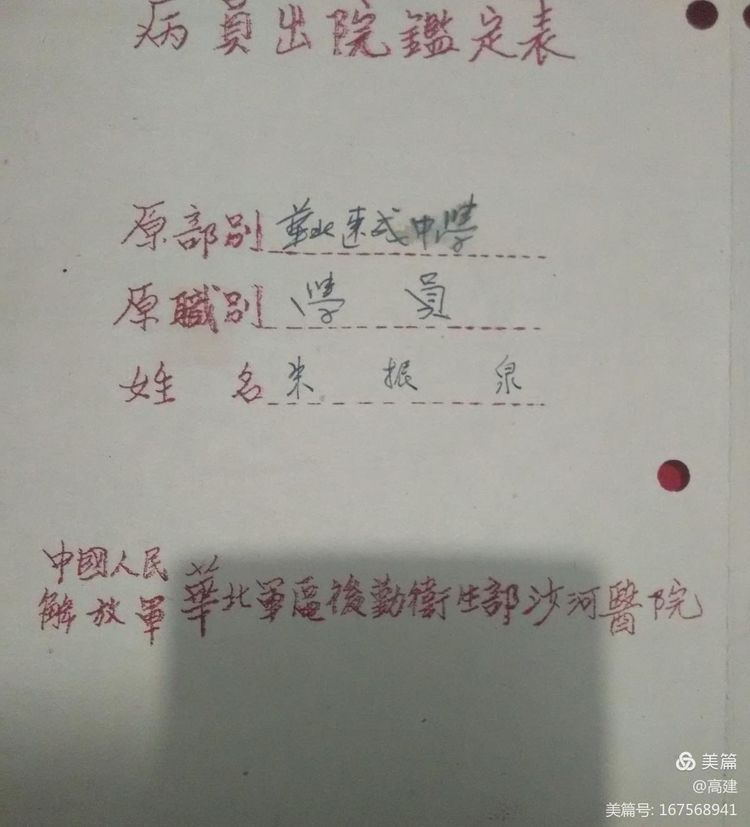 病員出院鑑定表
原部别 華北速成中學
原職别 學員
姓名 朱振泉
中國人民
解放軍 華北軍區後勤衛生部沙河醫院
美篇
@高建
美篇号: 167568941